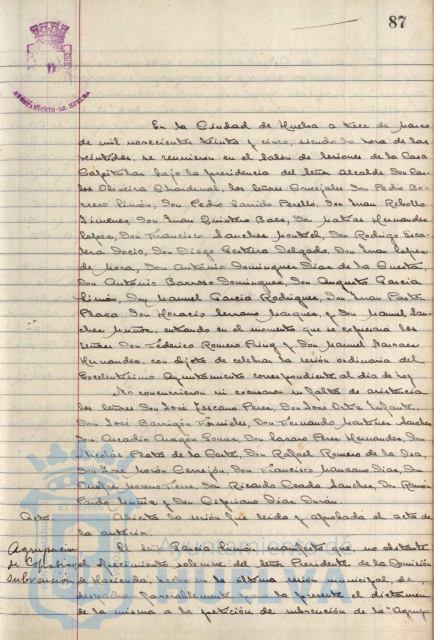 87
AYUNTAMIENTO DE HUELVA
En la Ciudad de Huelva a trece de Marzo
de mil novecientos treinta y cinco, siendo la hora de las
veintidos, se reunieron en el Salón de Sesiones de la Casa
Capitular bajo la presidencia del Señor Alcalde Don Car-
los Oliveira Chardenal, los Señores Concejales Don Pedro Bo-
rrero Limón, Don Pedro Garrido Perelló, Don Juan Rebollo
Jimenez, Don Juan Quintero Baez, Don Matias Hernandez
Lopez, Don Francisco Sanchez Don Rodrigo
Don Diego Delgado, Don Juan Lopez
de Mora, Don Antonio Dominguez Diaz de la Cuesta,
Don Antonio Barroso Dominguez, Don Augusto Garcia
Limón, Don Manuel Garcia Rodriguez, Don Juan
Plaza Don Horacio Serrano Marquez, y Don Manuel San-
chez Muñoz, entrando en el momento que se expresará los
Señores Don Federico Romero y Don Manuel
Hernandez, con objeto de celebrar la sesión ordinaria del
Excelentísimo Ayuntamiento correspondiente al día de hoy
No concurrieron ni excusaron su falta de asistencia
los Señores Don José Toscano Perez, Don José Ortiz Infante,
Don José Barrigón Don Fernando Martinez Sanchez
Don Arcadio Aragón Gomez, Don Lazaro Perez Hernandez, Don
Nicolas de la Corte, Don Rafael Romero de la
Don José Morón Don Francisco Manzano Diaz, Don
Moreno Don Ricardo Sanchez, Don Ramón
Pardo y Don Cipriano Diaz Durán.
Acta. Abierta la sesión fué leída y aprobada el acta de
la anterior.
Agrupación
de
subvención
El Señor García Limón manifestó que no obstante
el ofrecimiento solemne del Señor Presidente de la Comisión
de Hacienda, hecho en la última sesión municipal, de
despachar favorablemente para la presente el dictamen
de la misma a la petición de subvención de la "Agrup-
Ayuntamiento de
HUELVA